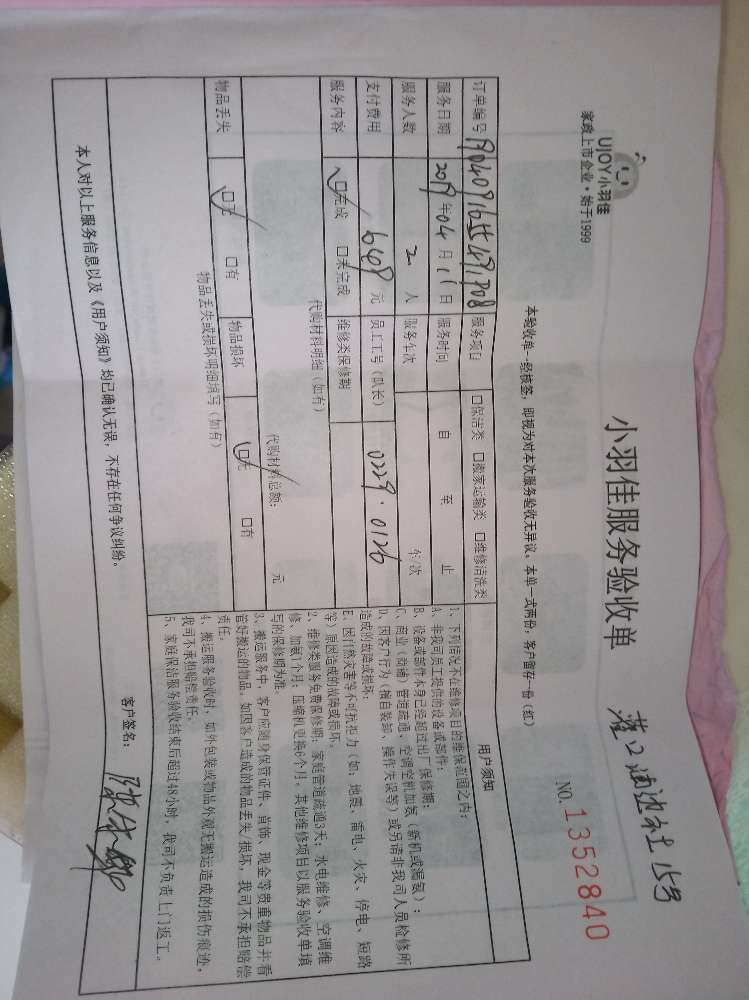 UJOY小羽佳
家政上市企业·始于1999
小羽佳服务验收单
灌口浦边社15号
NO.1352840
本验收单一经核签，即视为对本次服务验收无异议。本单一式两份，客户留存一份（红）
订单编号 服务项目 □保洁类 □搬家运输类 □维修清洗类
服务日期 2019年04月11日 服务时间 自 至 止
服务人数 2人 服务车次 车/次
支付费用 648元 员工工号（队长） 0229·0126
服务内容 ☑完成 □未完成 维修类保修期
代购材料明细（如有）
代购材料总额： 元
物品丢失 ☑无 □有 物品损坏 ☑无 □有
物品丢失或损坏明细填写（如有）
用户须知
1、下列情况不在维修项目的维保范围之内：
A、非我司员工提供的设备或部件；
B、设备或部件本身已经超过出厂保修期；
C、商业（商铺）管道疏通、空调空机加氨（新机或漏氨）；
D、因客户行为（擅自装卸、操作失误等）或另请非我司人员检修所
造成的故障或损坏；
E、因自然灾害等不可抗拒力（如：地震、雷电、火灾、停电、短路
等）原因造成的故障或损坏。
2、维修类服务免费保修期：家庭管道疏通3天；水电维修、空调维
修、加氨1个月；压缩机更换6个月。其他维修项目以服务验收单填
写的保修期为准。
3、搬运服务中，客户应随身保管证件、首饰、现金等贵重物品并看
管好搬运的物品。如因客户造成的物品丢失/损坏，我司不承担赔偿
责任。
4、搬运服务验收时，如外包装或物品外观无搬运造成的损伤痕迹，
我司不承担赔偿责任。
5、家庭保洁服务验收结束后超过48小时，我司不负责上门返工。
本人对以上服务信息以及《用户须知》均已确认无误，不存在任何争议纠纷。
客户签名：